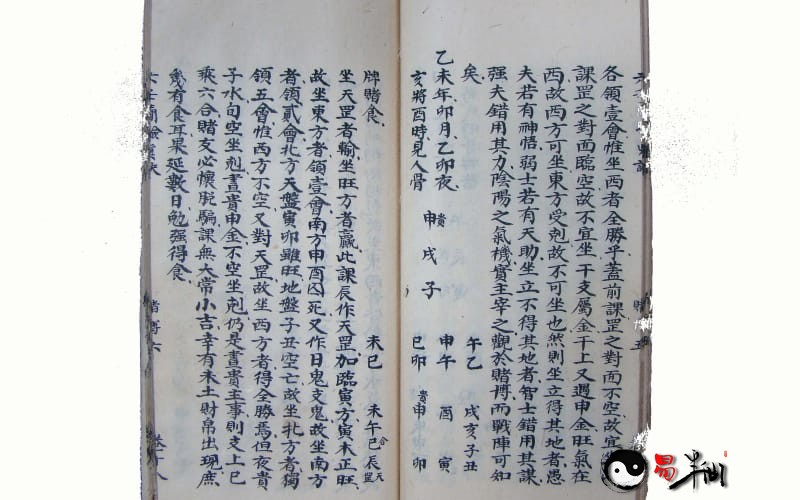 各領壹會惟坐西者全勝乎蓋前課罡之對面不空故宜坐
課罡之對面臨空故不宜坐干支屬金干上又遇申金旺氣在
西故西方可坐東方受剋故不可坐也然則坐立得其地者愚
夫若有神悟弱士若有天助坐立不得其地者智士錯用其謀
强夫錯用其力陰陽之氣機實主宰之觀於賭博而戰陣可知
矣
午乙 戌亥子丑
乙未年卯月乙卯夜
申午 酉 寅
亥將酉時見人骨
貴
申戌子
巳卯 申 卯
貴
牌賭食
未巳 未午巳辰
合 天罡
坐天罡者輸坐旺方者贏此課辰作天罡加臨寅方寅木正旺
故坐東方者領壹會南方申酉囚死又作日鬼支鬼故坐南方
者領貳會北方天盤寅卯雖旺地盤子丑空亡故坐北方者獨
領五會惟西方不空又對天罡故坐西方者得全勝焉但夜貴
子水旬空坐剋晝貴申金不空坐剋仍是晝貴主事則支上巳
乘六合賭友必懷脫騙課無大常小吉幸有未土財帛出現庶
幾有食耳果延數日勉强得食
賭博六
易半仙